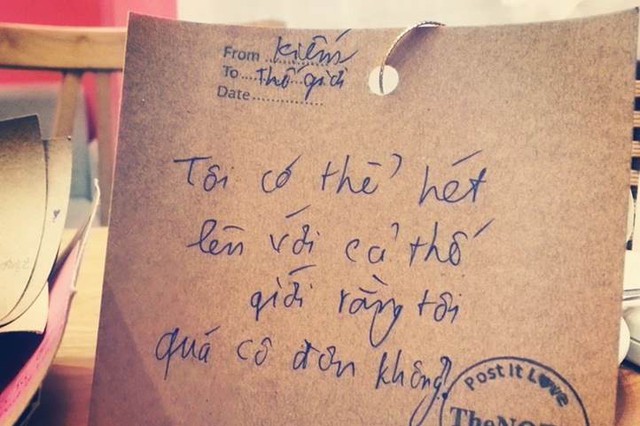 From kiếm
To thế giới
Date
Tôi có thể hét
lên với cả thế
giới rằng tôi
quá cô đơn không?
Post It Love
TheNOT